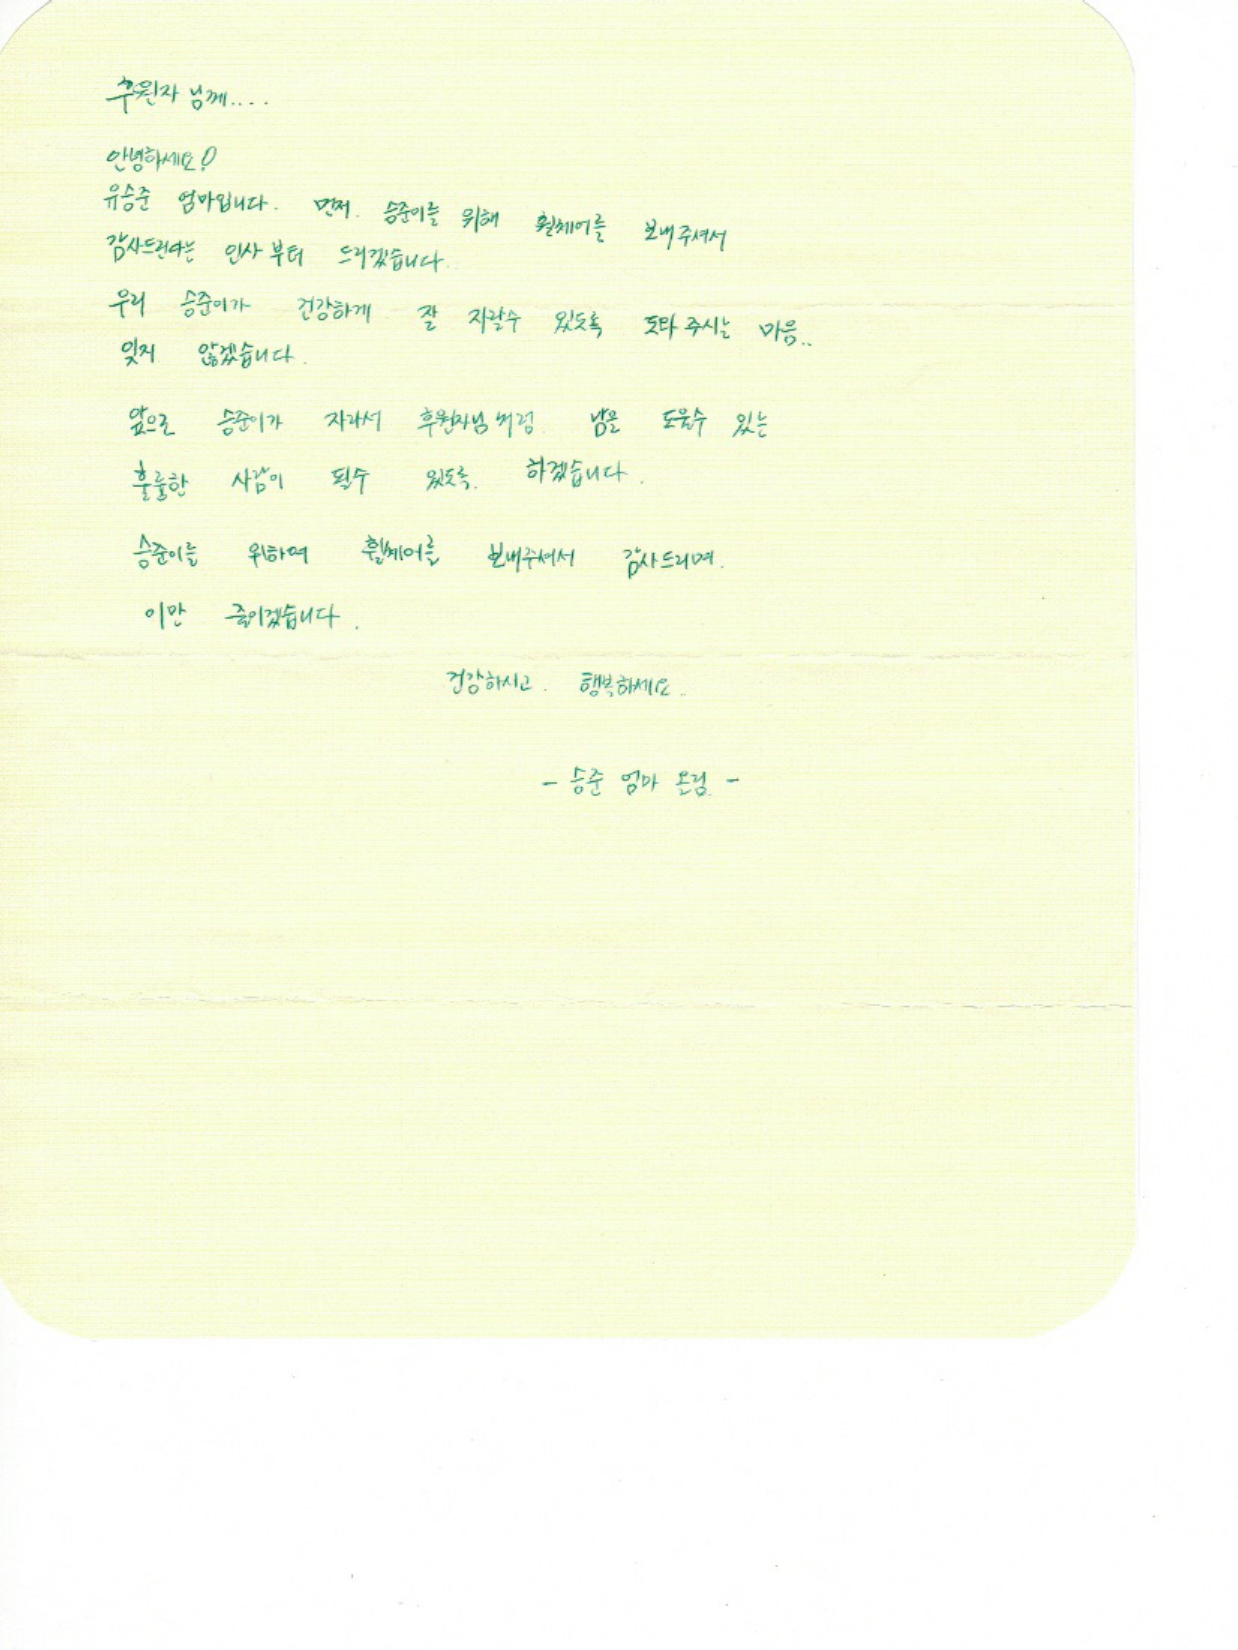 후원자 님께....
안녕하세요!
유승준 엄마입니다. 먼저. 승준이를 위해 휠체어를 보내주셔서
감사드린다는 인사부터 드리겠습니다.
우리 승준이가 건강하게 잘 자랄수 있도록 도와주시는 마음..
잊지 않겠습니다.
앞으로 승준이가 자라서 후원자님처럼 남을 도울수 있는
훌륭한 사람이 될수 있도록. 하겠습니다.
승준이를 위하여 휠체어를 보내주셔서 감사드리며.
이만 줄이겠습니다.
건강하시고. 행복하세요..
- 승준 엄마 올림. -